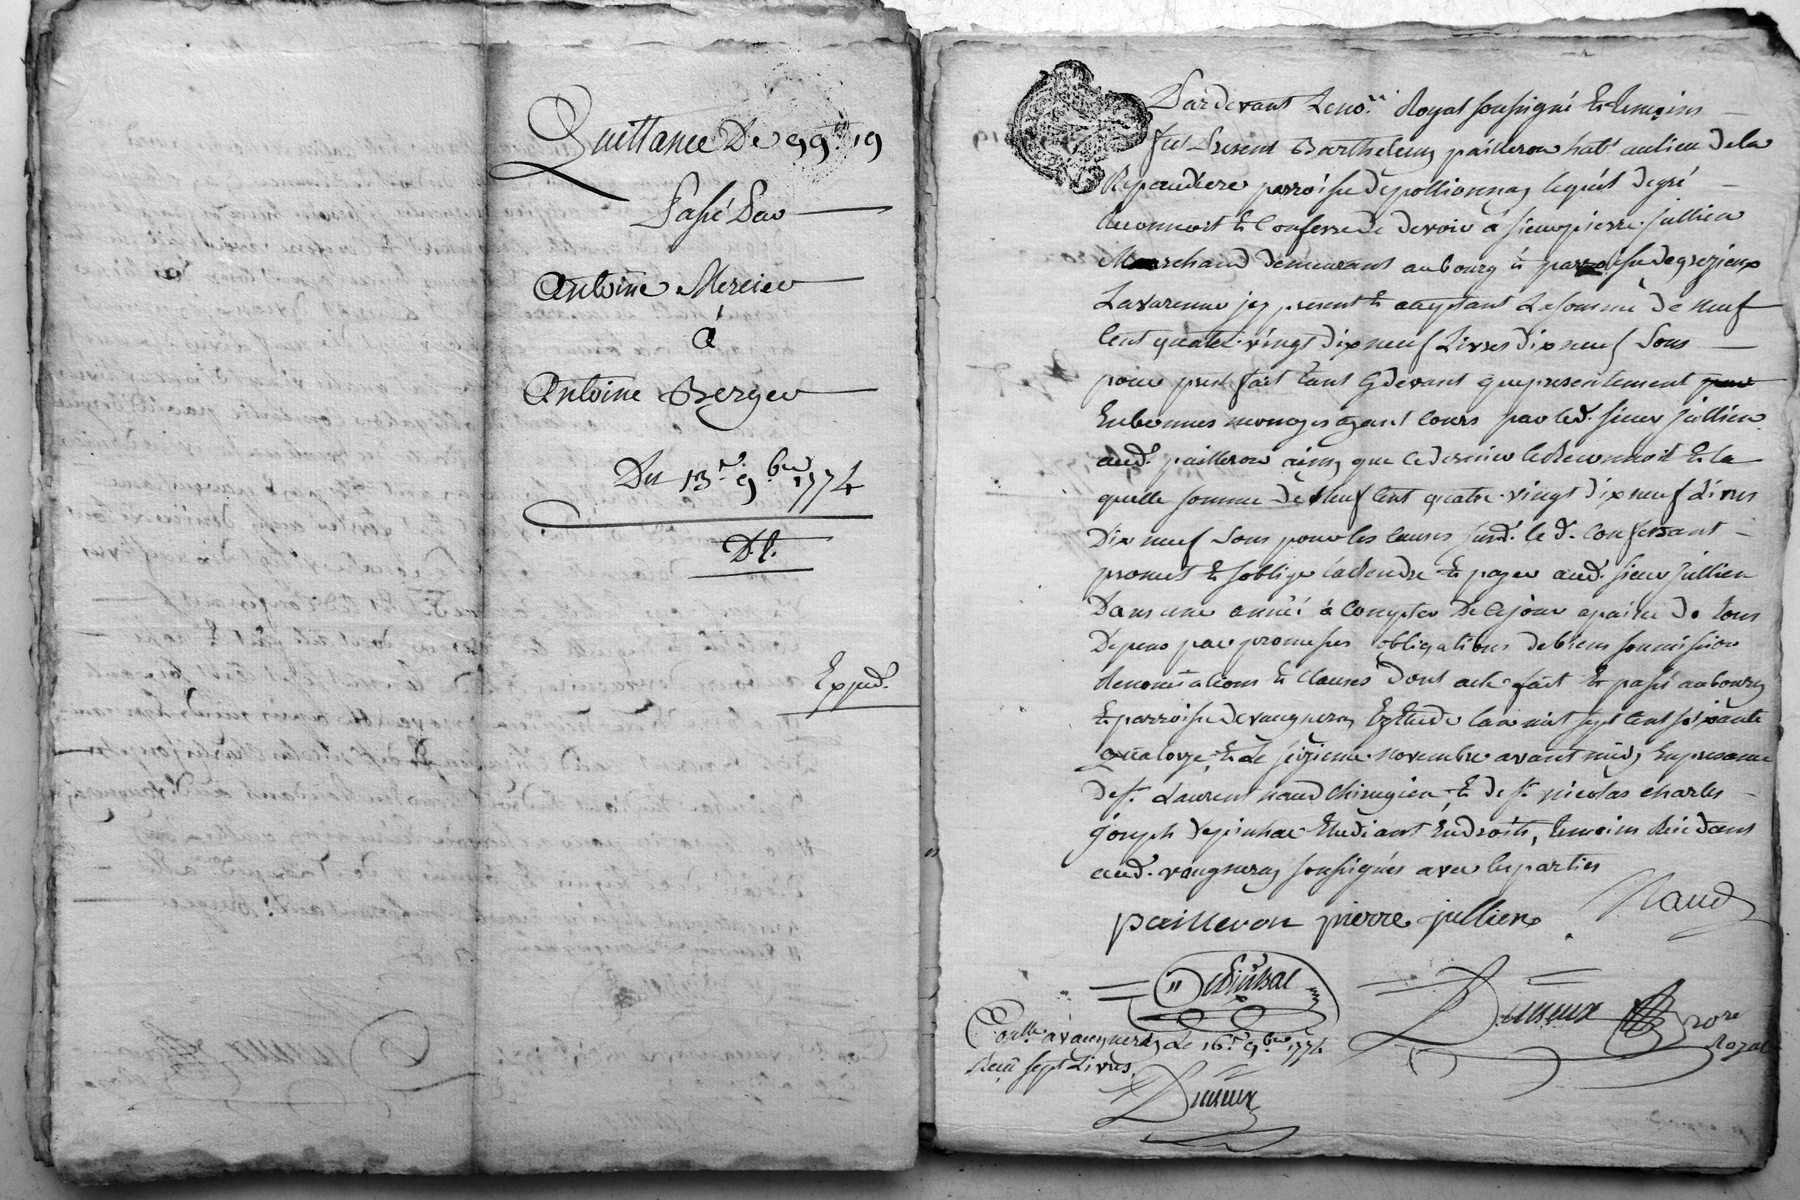 Quittance De 99ᵗᵗ 19
Passé Par
Antoine Mercier
à
Antoine Berger
Du 13.ᵉ 9.ᵇʳᵉ 1774
D.t.
Expéd.
Pardevant Le no.ʳᵉ Royal soussigné et temoins
fut Present Barthelemy pailleron habt au lieu de la
Repaudiere parroisse de pollionnay lequel de gré
Reconnoit et Confesse de devoir à sieur pierre jullien
Marchand demeurant au bourg et parroisse de grezieux
Lavarenne icy present et acceptant La somme de neuf
Cent quatre vingt dix neuf Livres dix neuf Sous
pour prest fait tant cy devant que presentement
En bonnes monoyes ayant cours par led. sieur jullien
aud. pailleron ainsy que ce dernier le Reconnoit et la
quelle somme de Neuf Cent quatre vingt dix neuf Livres
Dix neuf Sous pour les causes susd. le d. confessant
promet et s'oblige rendre et payer aud. sieur jullien
Dans une année à compter De ce jour a paine de tous
Depens par promesses obligations de biens soumission
Renonciations et clauses Dont acte fait et passé au bourg
et parroisse de vaugneray Etude L'an mil sept cent soixante
quatorze, et Le seizieme Novembre avant midy En presence
De s.ʳ Laurent naud chirugien et de s.ʳ nicolas charles
joseph depinhac Etudiant En droits, temoins Residans
aud. vaugneray soussignés avec les parties
pailleron pierre jullien Naud
Depinhac
Dumeux no.ʳᵉ
Royal
Con.ˡˡᵉ à vaugneray Le 16.ᵉ 9.ᵇʳᵉ 1774
Reçu sept Livres
Dumeux